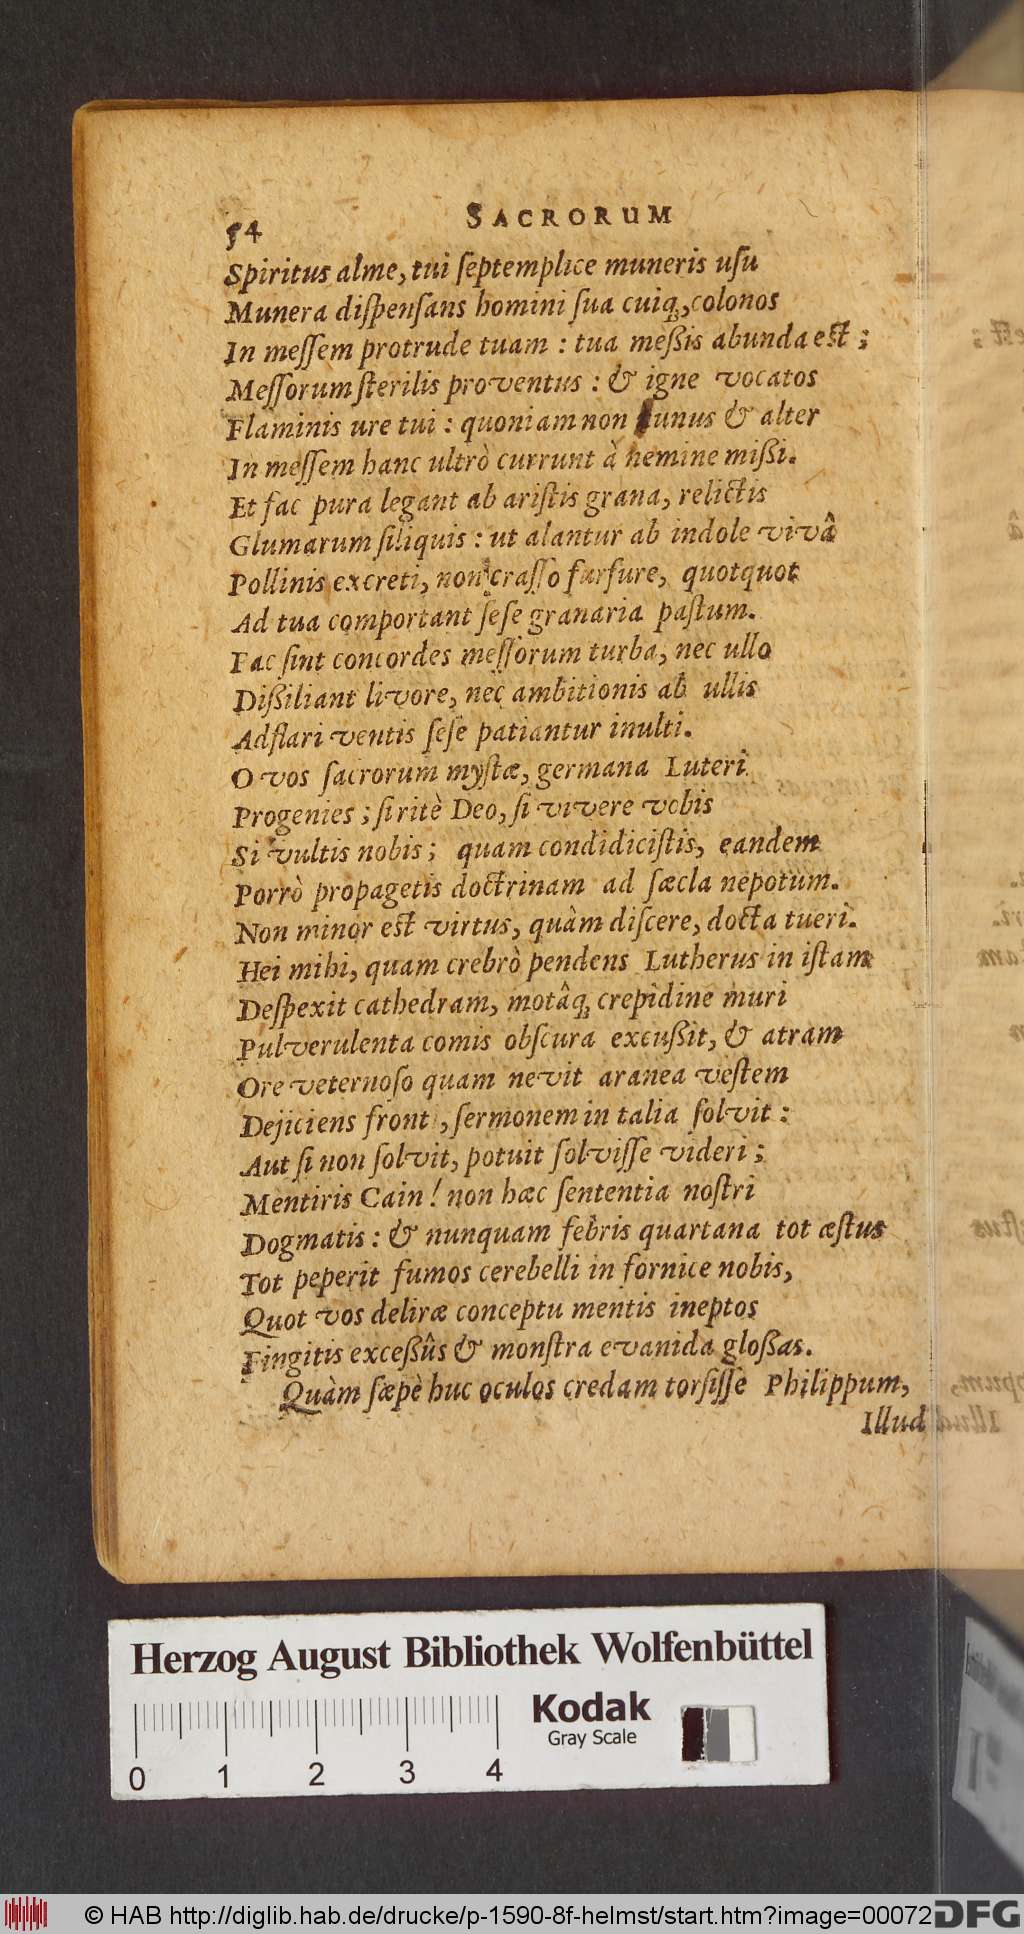 54 SACRORUM
Spiritus alme, tui ſeptemplice muneris uſu
Munera diſpenſans homini ſua cuiq;, colonos
In meſſem protrude tuam : tua meßis abunda eſt ;
Meſſorum ſterilis proventus : & igne vocatos
Flaminis ure tui : quoniam non unus & alter
In meſſem hanc ultrò currunt à nemine mißi.
Et fac pura legant ab ariſtis grana, relictis
Glumarum ſiliquis : ut alantur ab indole vivâ
Pollinis excreti, non craſſo furfure, quotquot
Ad tua comportant ſeſe granaria paſtum.
Fac ſint concordes meſſorum turba, nec ullo
Dißiliant livore, nec ambitionis ab ullis
Adflari ventis ſeſe patiantur inulti.
O vos ſacrorum myſtæ, germana Luteri
Progenies ; ſi ritè Deo, ſi vivere vobis
Si vultis nobis ; quam condidiciſtis, eandem
Porrò propagetis doctrinam ad ſæcla nepotum.
Non minor eſt virtus, quàm diſcere, docta tueri.
Hei mihi, quam crebrò pendens Lutherus in iſtam
Deſpexit cathedram, motâq; crepidine muri
Pulverulenta comis obſcura excußit, & atram
Ore veternoſo quam nevit aranea veſtem
Dejiciens front, ſermonem in talia ſolvit :
Aut ſi non ſolvit, potuit ſolviſſe videri ;
Mentiris Cain ! non hæc ſententia noſtri
Dogmatis : & nunquam febris quartana tot æſtus
Tot peperit fumos cerebelli in fornice nobis,
Quot vos deliræ conceptu mentis ineptos
Fingitis exceßûs & monſtra evanida gloßas.
Quàm ſæpè huc oculos credam torſiſſe Philippum,
Illud
Herzog August Bibliothek Wolfenbüttel
Kodak
Gray Scale
0 1 2 3 4
© HAB http://diglib.hab.de/drucke/p-1590-8f-helmst/start.htm?image=00072
DFG